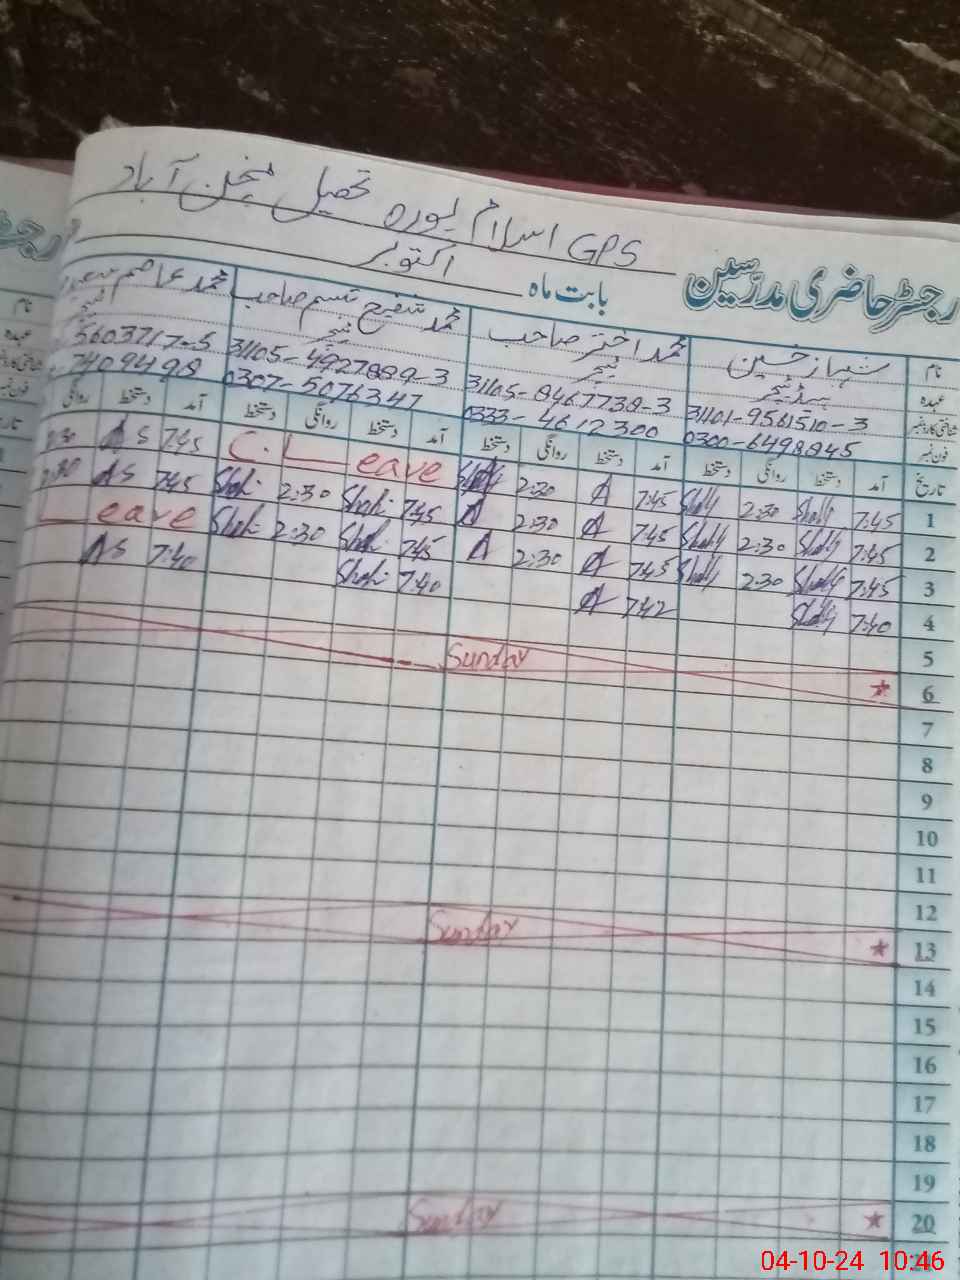 GPS اسلام پورہ تحصیل منچن آباد
رجسٹر حاضری مدرسین بابت ماہ اکتوبر
نام شہباز حسین محمد اختر صاحب محمد شفیع تبسم صاحب محمد عاصم
عہدہ ہیڈ ٹیچر ٹیچر ٹیچر ٹیچر
شناختی کارڈ نمبر 31101-9561510-3 31105-8467738-3 31105-4927889-3 5603717-5
فون نمبر 0300-6498845 0333-4612300 0307-5076347 7409498
تاریخ آمد دستخط روانگی دستخط آمد دستخط روانگی دستخط آمد دستخط روانگی دستخط آمد دستخط روانگی
1 7:45 2:30 7:45 2:30 C. Leave 7:45 AS 2:30
2 7:45 2:30 7:45 2:30 7:45 Shafi 2:30 Shafi 7:45 AS 2:30
3 7:45 2:30 7:45 2:30 7:45 Shafi 2:30 Shafi Leave
4 7:40 7:42 7:40 Shafi 7:40 AS
5
6 ★ Sunday
7
8
9
10
11
12
13 ★ Sunday
14
15
16
17
18
19
20 ★ Sunday
21
04-10-24 10:46